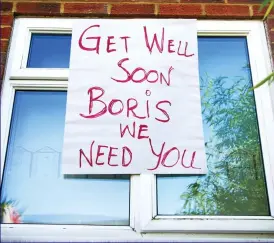 Get Well
Soon
Boris
we
need You